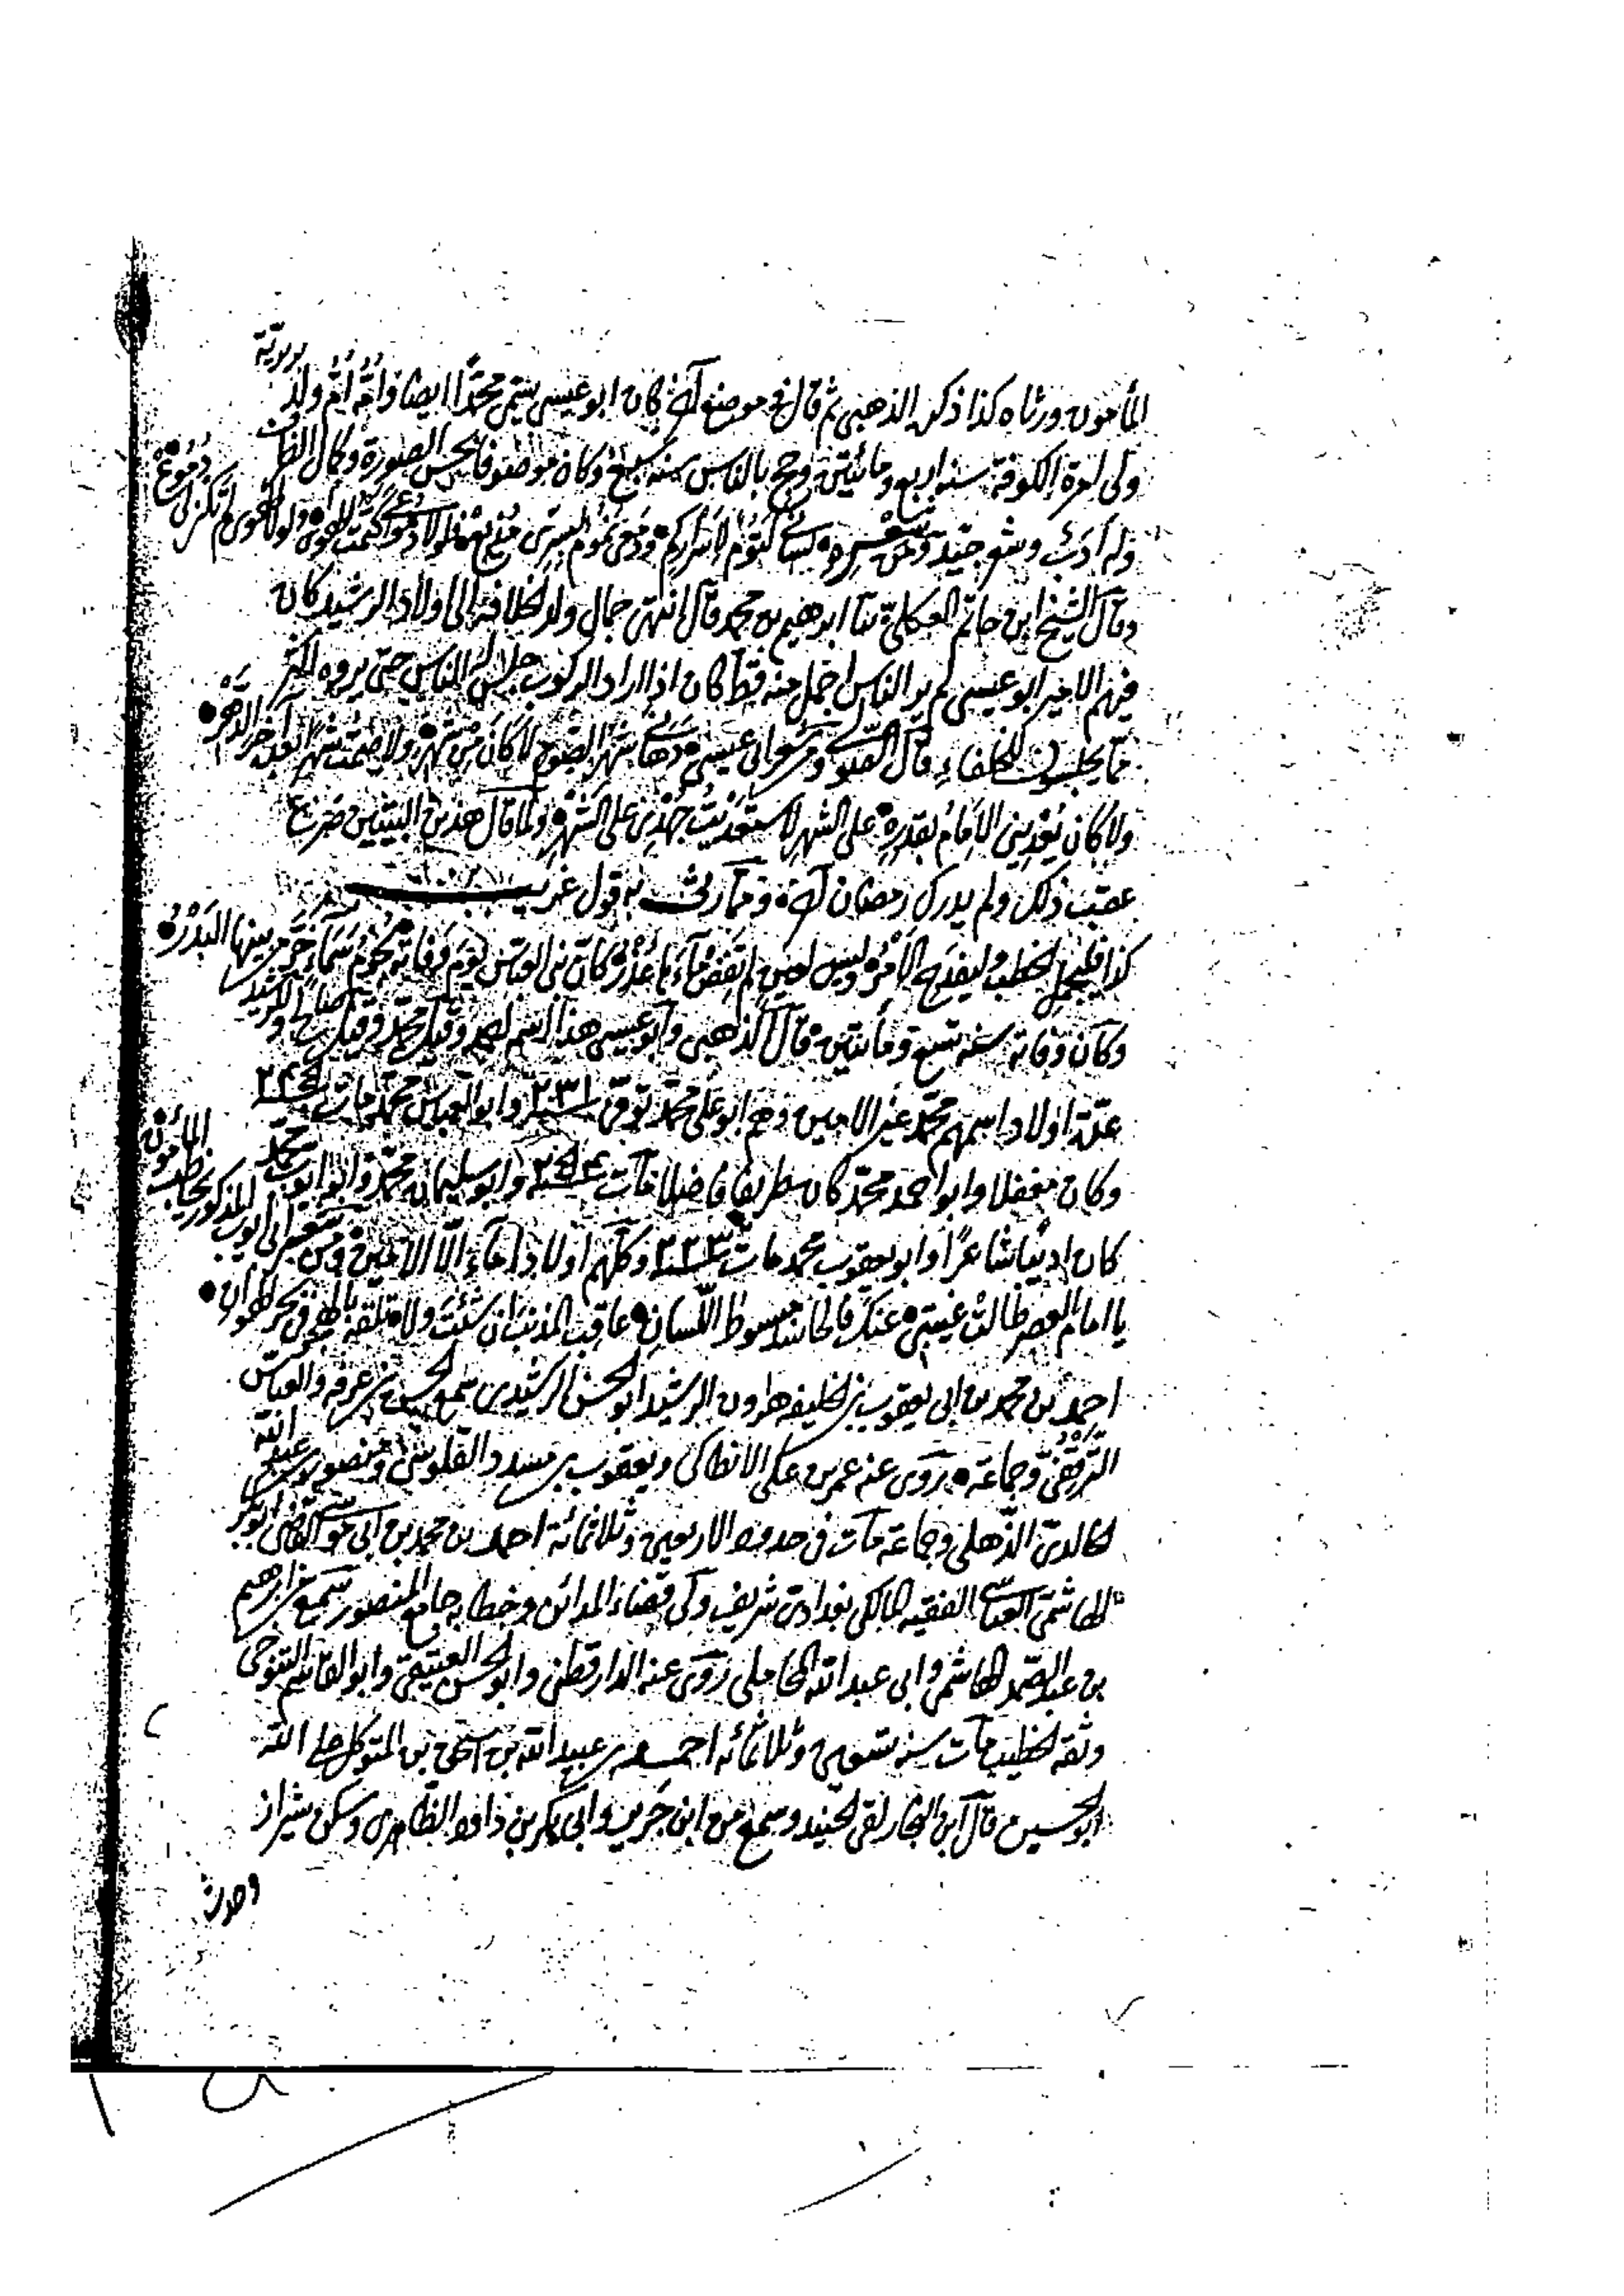 المأمون ورثاه كذا ذكره الذهبي ثم قال في موضع آخر كان ابو عيسى يسمى محمدًا ايضا وامه ام ولد بربرية
ولي امرة الكوفة سنة اربع ومائتين وحج بالناس سنة سبع وكان موصوفا بحسن الصورة وكمال الظرف
وله ادب وشعر جيد ومن شعره لساني كتوم لاسراركم ودمعي نموم لسري مذيع فلولا دموعي كتمت الهوى ولولا الهوى لم تكن لي دموع
وقال الشيخ ابن حاتم العكلي ثنا ابراهيم بن محمد قال انتهى جمال ولد الخلافة الى اولاد الرشيد كان
فيهم الامير ابو عيسى لم ير الناس اجمل منه قط كان اذا اراد الركوب جلس له الناس حتى يروه اكثر
مما يجلسون للخلفاء قال الصولي ومن شعر ابي عيسى دهاني شهر الصوم لا كان من شهر ولا صمت شهرا بعده آخر الدهر
ولا كان يعديني الامام بقدرة على الشهر لاستعديت جهدي على الشهر ولما قال هذين البيتين صرع
عقب ذلك ولم يدرك رمضان آخر ومما رثى به قول عريب
كذا فليجل الخطب وليفدح الامر وليس لعين لم يفض ماءها عذر كأن بني العباس يوم وفاته نجوم سماء خر من بينها البدر
وكان وفاته سنة تسع ومائتين قال الذهبي وابو عيسى هذا اسمه احمد وقيل محمد وقيل صالح وللرشيد
عدة اولاد اسمهم محمد غير الامين وهم ابو علي محمد توفي ٢٣١ وابو العباس محمد مات
وكان مغفلا وابو احمد محمد كان ظريفا فاضلا مات وابو سليمان محمد وابو ايوب محمد
كان اديبا شاعرًا وابو يعقوب محمد مات ٢٢٣ وكلهم اولاد اماء الا الامين ومن شعر ابي ايوب المذكور يخاطب المأمون
يا امام العصر طالت غيبتي عنك فالحاسد مبسوط اللسان عاقب المذنب ان شئت ولا تلقه بالهجر في بحر الهوان
احمد بن محمد بن ابي يعقوب بن الخليفة هارون الرشيد ابو الحسن الرشيدي سمع الحسن بن عرفة والعباس
الترقفي وجماعة روى عنه عمر بن علي الانطاكي ويعقوب بن مسدد القلوسي ومنصور بن عبد الله
الخالدي الذهلي وجماعة مات في حدود الاربعين وثلاثمائة احمد بن محمد بن ابي موسى القاضي ابو بكر
الهاشمي العباسي الفقيه المالكي بغدادي شريف ولي قضاء المدائن وخطابة جامع المنصور سمع من ابراهيم
بن عبد الصمد الهاشمي وابي عبد الله المحاملي روى عنه الدارقطني وابو الحسن العتيقي وابو القاسم التنوخي
وثقه الخطيب مات سنة تسعين وثلاثمائة احمد بن عبيد الله بن اسحق بن المتوكل على الله
ابو الحسين قال ابن النجار لقي الجنيد وسمع من ابن جرير وابي بكر بن داود الظاهري وسكن شيراز
وحدث